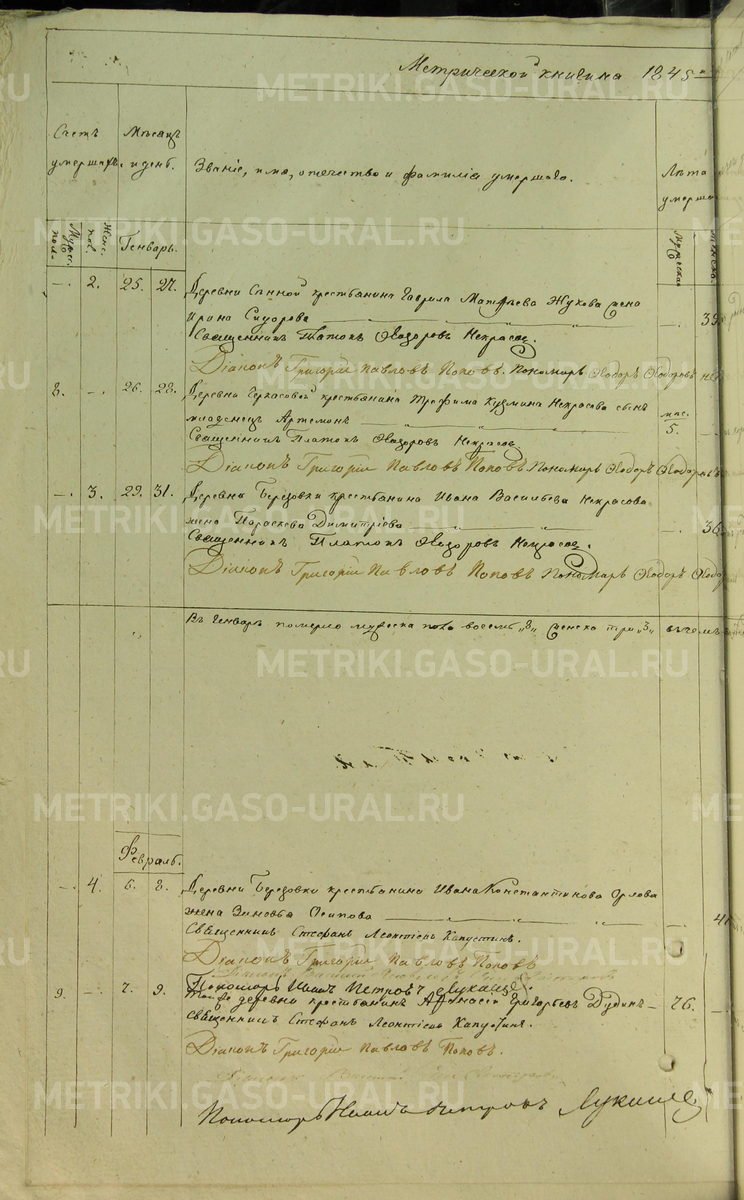 Метрической книги на 1845
Счетъ умершихъ.
Мѣсяцъ и день.
Званіе, имя, отечество и фамилія умершаго.
Лѣта умерша
Мужес. пол.
Женс. пол.
Генварь.
Мужеска
Женска.
—. 2. 25. 27. Деревни Сѣнной крестьянина Гаврила Матфѣева Жукова жена
Ирина Сидорова —. 35
Священникъ Платонъ Ѳеодоровъ Некрасов.
Діаконъ Григорій Павловъ Поповъ. Пономарь Ѳеодоръ Ѳеодоровъ
8. —. 26. 28. Деревни крестьянина Трофима Кузмина Некрасова сынъ
младенецъ Артемонъ мѣс. 5. —.
Священникъ Платонъ Ѳеодоровъ Некрасов
Діаконъ Григорій Павловъ Поповъ Пономарь Ѳеодоръ Ѳеодоровъ
—. 3. 29. 31. Деревни Березовки крестьянина Ивана Васильева Некрасова
жена Параскева Димитріева —. 36
Священникъ Платонъ Ѳеодоровъ Некрасов.
Діаконъ Григорій Павловъ Поповъ Пономарь Ѳеодоръ Ѳеодо
Въ Генварѣ померло мужеска пола восемь „8„ женска три „3„ всѣхъ
Февраль.
—. 4. 6. 8. Деревни Березовки крестьянина Ивана Константинова Орлова
жена Зиновья Осипова —. 4
Священникъ Стефанъ Леонтіевъ Капустинъ.
Діаконъ Григорій Павловъ Поповъ
Пономарь Иванъ Петровъ Лукания
9. —. 7. 9. Тойже деревни крестьянинъ Афанасій Григорьевъ Дудинъ — 76. —
Священникъ Стефанъ Леонтіевъ Капустинъ.
Діаконъ Григорій Павловъ Поповъ.
Пономарь Иванъ Петровъ
METRIKI.GASO-URAL.RU